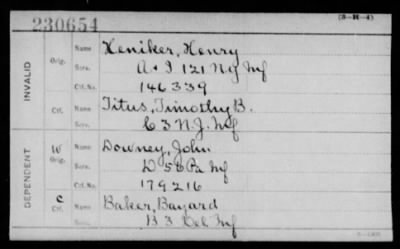 230654
(3-H-4)
INVALID
Orig. Name Heniker, Henry
Serv. A & I 121 N Y Inf
Ctf. No. 146339
Ctf. Name Titus, Timothy B.
Serv. C 3 N.J. Inf
DEPENDENT
W Orig. Name Downey, John
Serv. D 56 Pa Inf
Ctf. No. 179216
C Ctf. Name Baker, Bayard
Serv. B 3 Del Inf